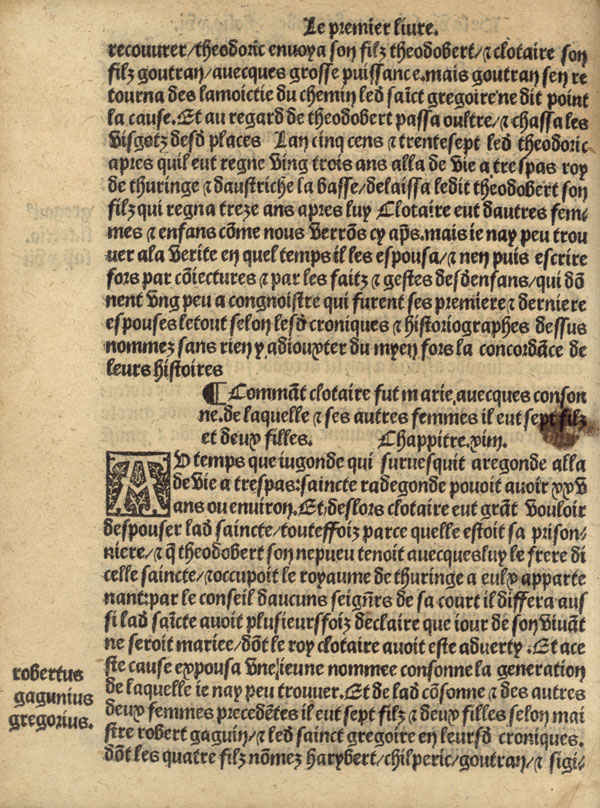 Le premier liure.
recouurer/theodoric enuoya son filz theodobert/⁊ clotaire son
filz goutran/auecques grosse puissance.mais goutran sen re
tourna des lamoictie du chemin led̄ saīct gregoire ne dit point
la cause.Et au regard de theodobert passa oultre/⁊ chassa les
visgotz desd̄ places Lan cinq cens ⁊ trentesept led̄ theodoric
apres quil eut regne ving trois ans alla de vie a trespas roy
de thuringe ⁊ daustriche la basse/delaissa ledit theodobert son
filz qui regna treze ans apres luy Clotaire eut dautres fem-
mes ⁊ enfans cōme nous verrōs cy ap̄s.mais ie nay peu trou
uer ala verite en quel temps il les espousa/⁊ nen puis escrire
fors par cōiectures ⁊ par les faitz ⁊ gestes desd̄enfans/qui dō
nent vng peu a congnoistre qui furent ses premiere ⁊ derniere
espouses letout selon lesd̄ croniques ⁊ historiographes dessus
nommez sans rien y adiouxter du myen fors la concordāce de
leurs histoires
¶ Commāt clotaire fut marie,auecques conson
ne.de laquelle ⁊ ses autres femmes il eut sept filz
et deux filles. Chappitre.xiiii.
AV temps que iugonde qui suruesquit aregonde alla
de vie a trespas:saincte radegonde pouoit auoir xxv
ans ou enuiron.Et,deslors clotaire eut grāt vouloir
despouser lad̄ saincte/touteffoiz parce quelle estoit sa prison-
niere/⁊ q̄ theodobert son nepueu tenoit auecquesluy le frere di
celle saincte/⁊occupoit le royaume de thuringe a eulx apparte
nant:par le conseil daucuns seign̄rs de sa court il differa aus
si lad̄ saīcte auoit plusieursfoiz declaire que iour de son viuāt
ne seroit mariee/dōt le roy clotaire auoit este aduerty .Et a ce
ste cause expousa vne ieune nommee consonne la generation
de laquelle ie nay peu trouuer.Et de lad̄ cōsonne ⁊ des autres
deux femmes precedētes il eut sept filz ⁊ deux filles selon mai
stre robert gaguin/⁊ led̄ sainct gregoire en leursd̄ croniques.
dōt les quatre filz nōmez harybert/chilperic/goutran/⁊ sigi-
robertus
gagunius
gregorius.